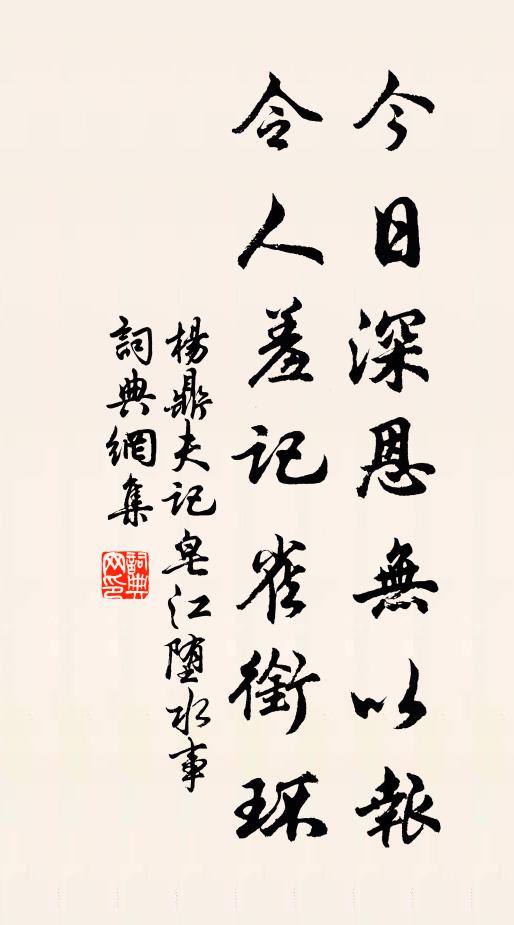 今日深恩無以報
令人羞記雀銜環
楊鼎夫記皂江墮水事
詞典網集
詞典網印